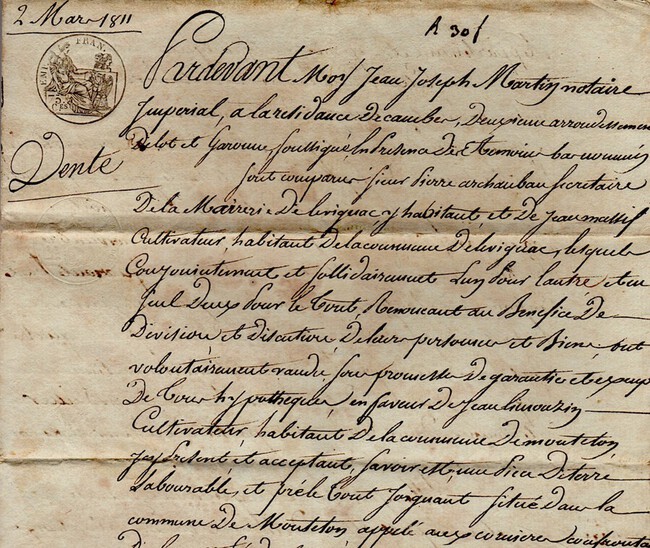 2 Mars 1811
A 30 f
EMPIRE FRAN.
Pardevant Moy Jean Joseph Martin notaire
Imperial, a la residance de cambes, Deuxieme arrondissement
De lot et Garonne, soussigné, En Presence des temoins bas nommés
Vente
sont comparus sieur Pierre archambau secretaire
De la Mairerie De levignac y habitant, et De Jean massif
Cultivateur habitant De la commune De levignac, lesquels
Conjointement et sollidairement Lun Pour Lautre et un
seul Deux Pour le Tout, Renoncant au Benefice De
Division et Discution, De leurs personnes et Biens, ont
volontairement vandu sous promesse De garantie et
De Tous hypotheques en faveur De Jean Limouzin
Cultivateur, habitant De la commune De monteton
Present et acceptant, savoir est, une Piece De terre
Labourable, et pré le Tout Joignant situé Dans la
commune De Monteton, appelé aux